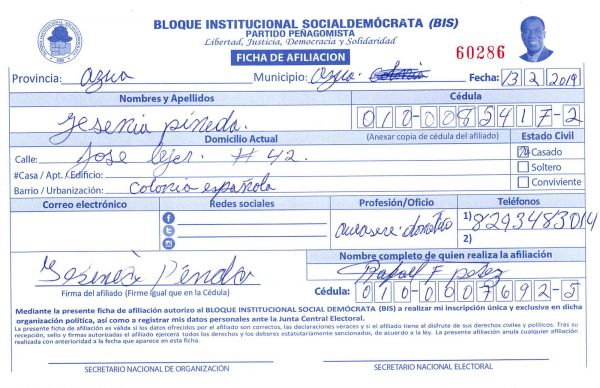 BLOQUE INSTITUCIONAL SOCIALDEMÓCRATA (BIS)
PARTIDO PEÑAGOMISTA
Libertad, Justicia, Democracia y Solidaridad
FICHA DE AFILIACION
60286
Provincia: Azua Municipio: Azua Colonia Fecha: 13 2 2019
Nombres y Apellidos Cédula
Yesenia pineda. 010-0085417-2
Domicilio Actual (Anexar copia de cédula del afiliado) Estado Civil
Calle: Jose # 42. Casado
#Casa / Apt. / Edificio: Soltero
Barrio / Urbanización: Colonia española Conviviente
Correo electrónico Redes sociales Profesión/Oficio Teléfonos
1) 8293483014
2)
Nombre completo de quien realiza la afiliación
Yesenia Pineda Rafael F perez
Firma del afiliado (Firme igual que en la Cédula) Cédula: 010-0007692-5
Mediante la presente ficha de afiliación autorizo al BLOQUE INSTITUCIONAL SOCIAL DEMÓCRATA (BIS) a realizar mi inscripción única y exclusiva en dicha
organización política, así como a registrar mis datos personales ante la Junta Central Electoral.
La presente ficha de afiliación es válida si los datos ofrecidos por el afiliado son correctos, las declaraciones veraces y si el afiliado tiene el disfrute de sus derechos civiles y políticos. Tras su
recepción, sello y firma autorizadas el afiliado ejercerá todos los derechos y los deberes estatutariamente sancionados, de acuerdo a la ley. La presente afiliación anula cualquier afiliación
realizada con anterioridad a la fecha que aparece en esta ficha.
SECRETARIO NACIONAL DE ORGANIZACIÓN SECRETARIO NACIONAL ELECTORAL